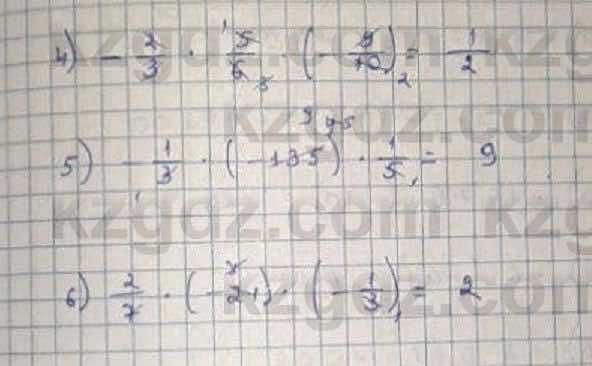 4) - 2/3 · 5/6 · (- 9/10) = 1/2
5) - 1/3 · (-135) · 1/5 = 9
6) 2/7 · (-21) · (- 1/3) = 2
kzgdz.com